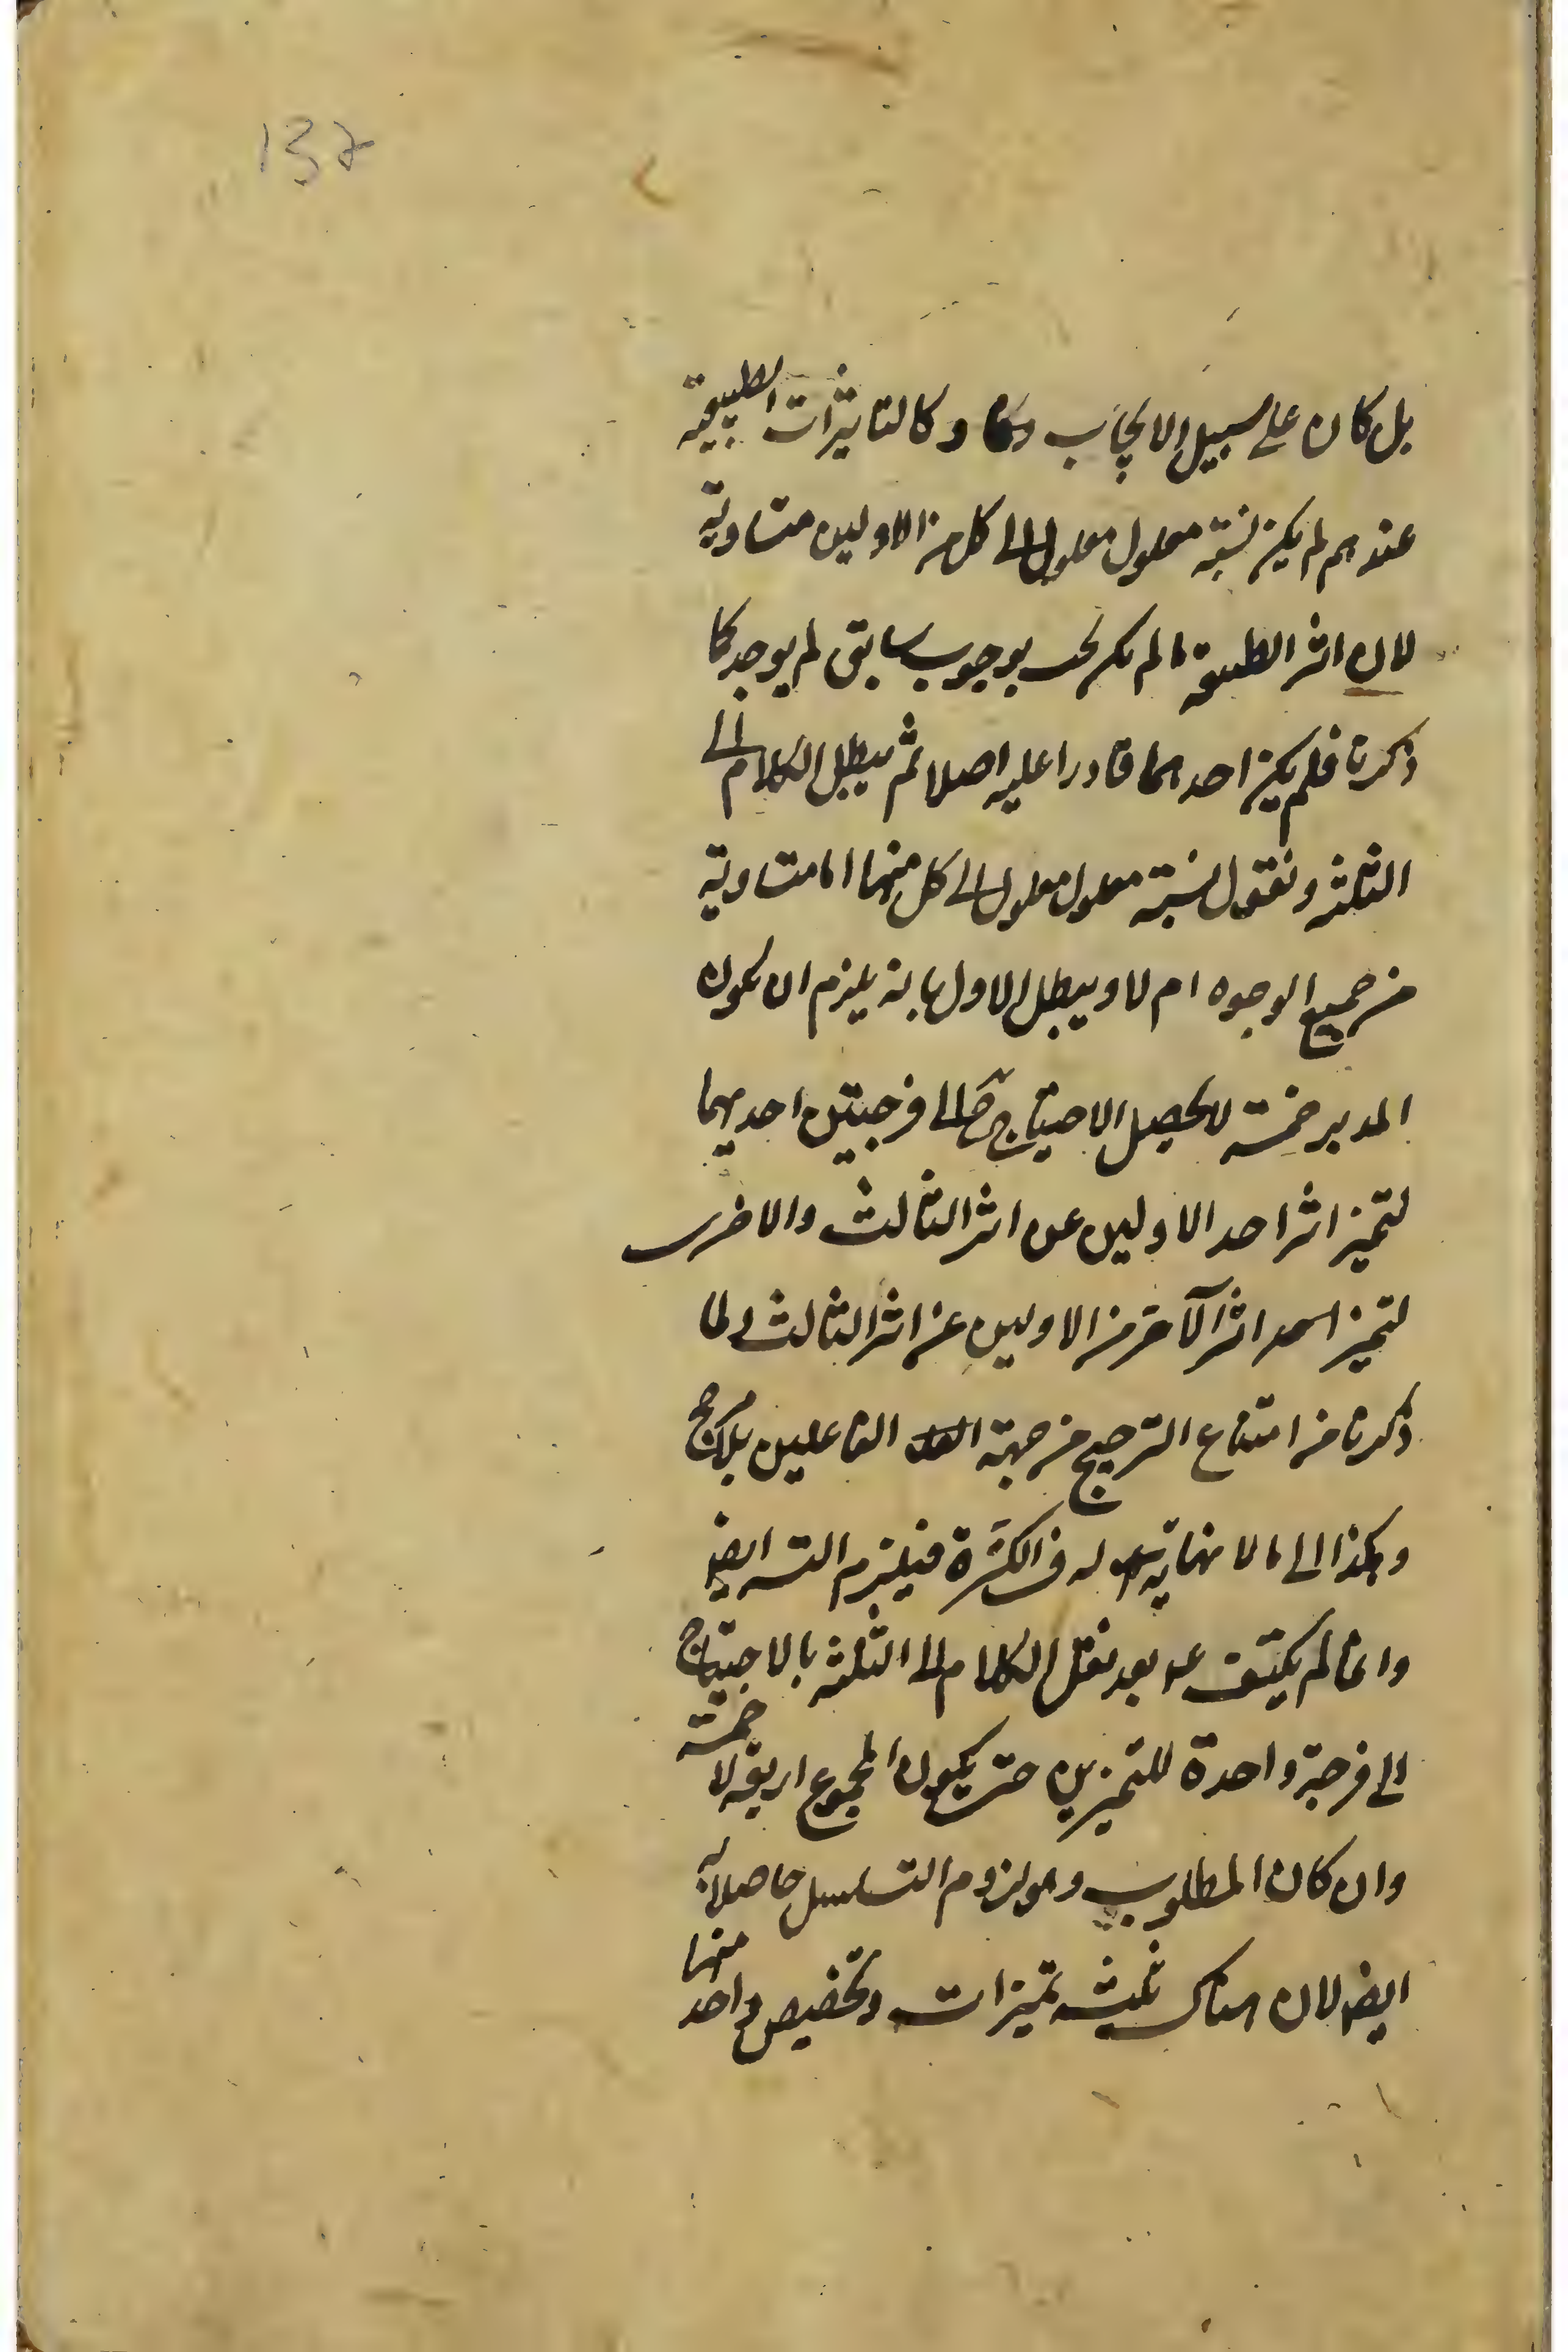 137
بل كان على سبيل الايجاب وكالتاثيرات الطبيعية
عندهم لم يكن نسبة معلول معلول الى كل من الاولين متساوية
لان اثر الطبيعة ما لم يكن يجب بوجوب سابق لم يوجد كما
ذكرنا فلم يكن احدهما قادرا عليه اصلا ثم الكلام الى
الثلثة ونقول نسبة معلول معلول الى كل منهما اما متساوية
من جميع الوجوه ام لا ويبطل الاول بانه يلزم ان يكون
المدبر خمسة لا يحصل الاحتياج ح الى فرجتين احديهما
لتميز اثر احد الاولين عن اثر الثالث والاخرى
لتميز اثر الآخر من الاولين عن اثر الثالث لما
ذكرنا من امتناع الترجيح من جهة الفاعلين بلا مرجح
وهكذا الى ما لا نهاية له في الكثرة فيلزم التسه ايضا
وانما لم يكتف بعد نقل الكلام الى الثلثة بالاحتياج
الى فرجة واحدة للتميزين حتى يكون المجموع اربعة لا خمسة
وان كان المطلوب وهو لزوم التسلسل حاصلا به
ايضا لان هناك ثلثة تميزات وتخصيص واحد منها